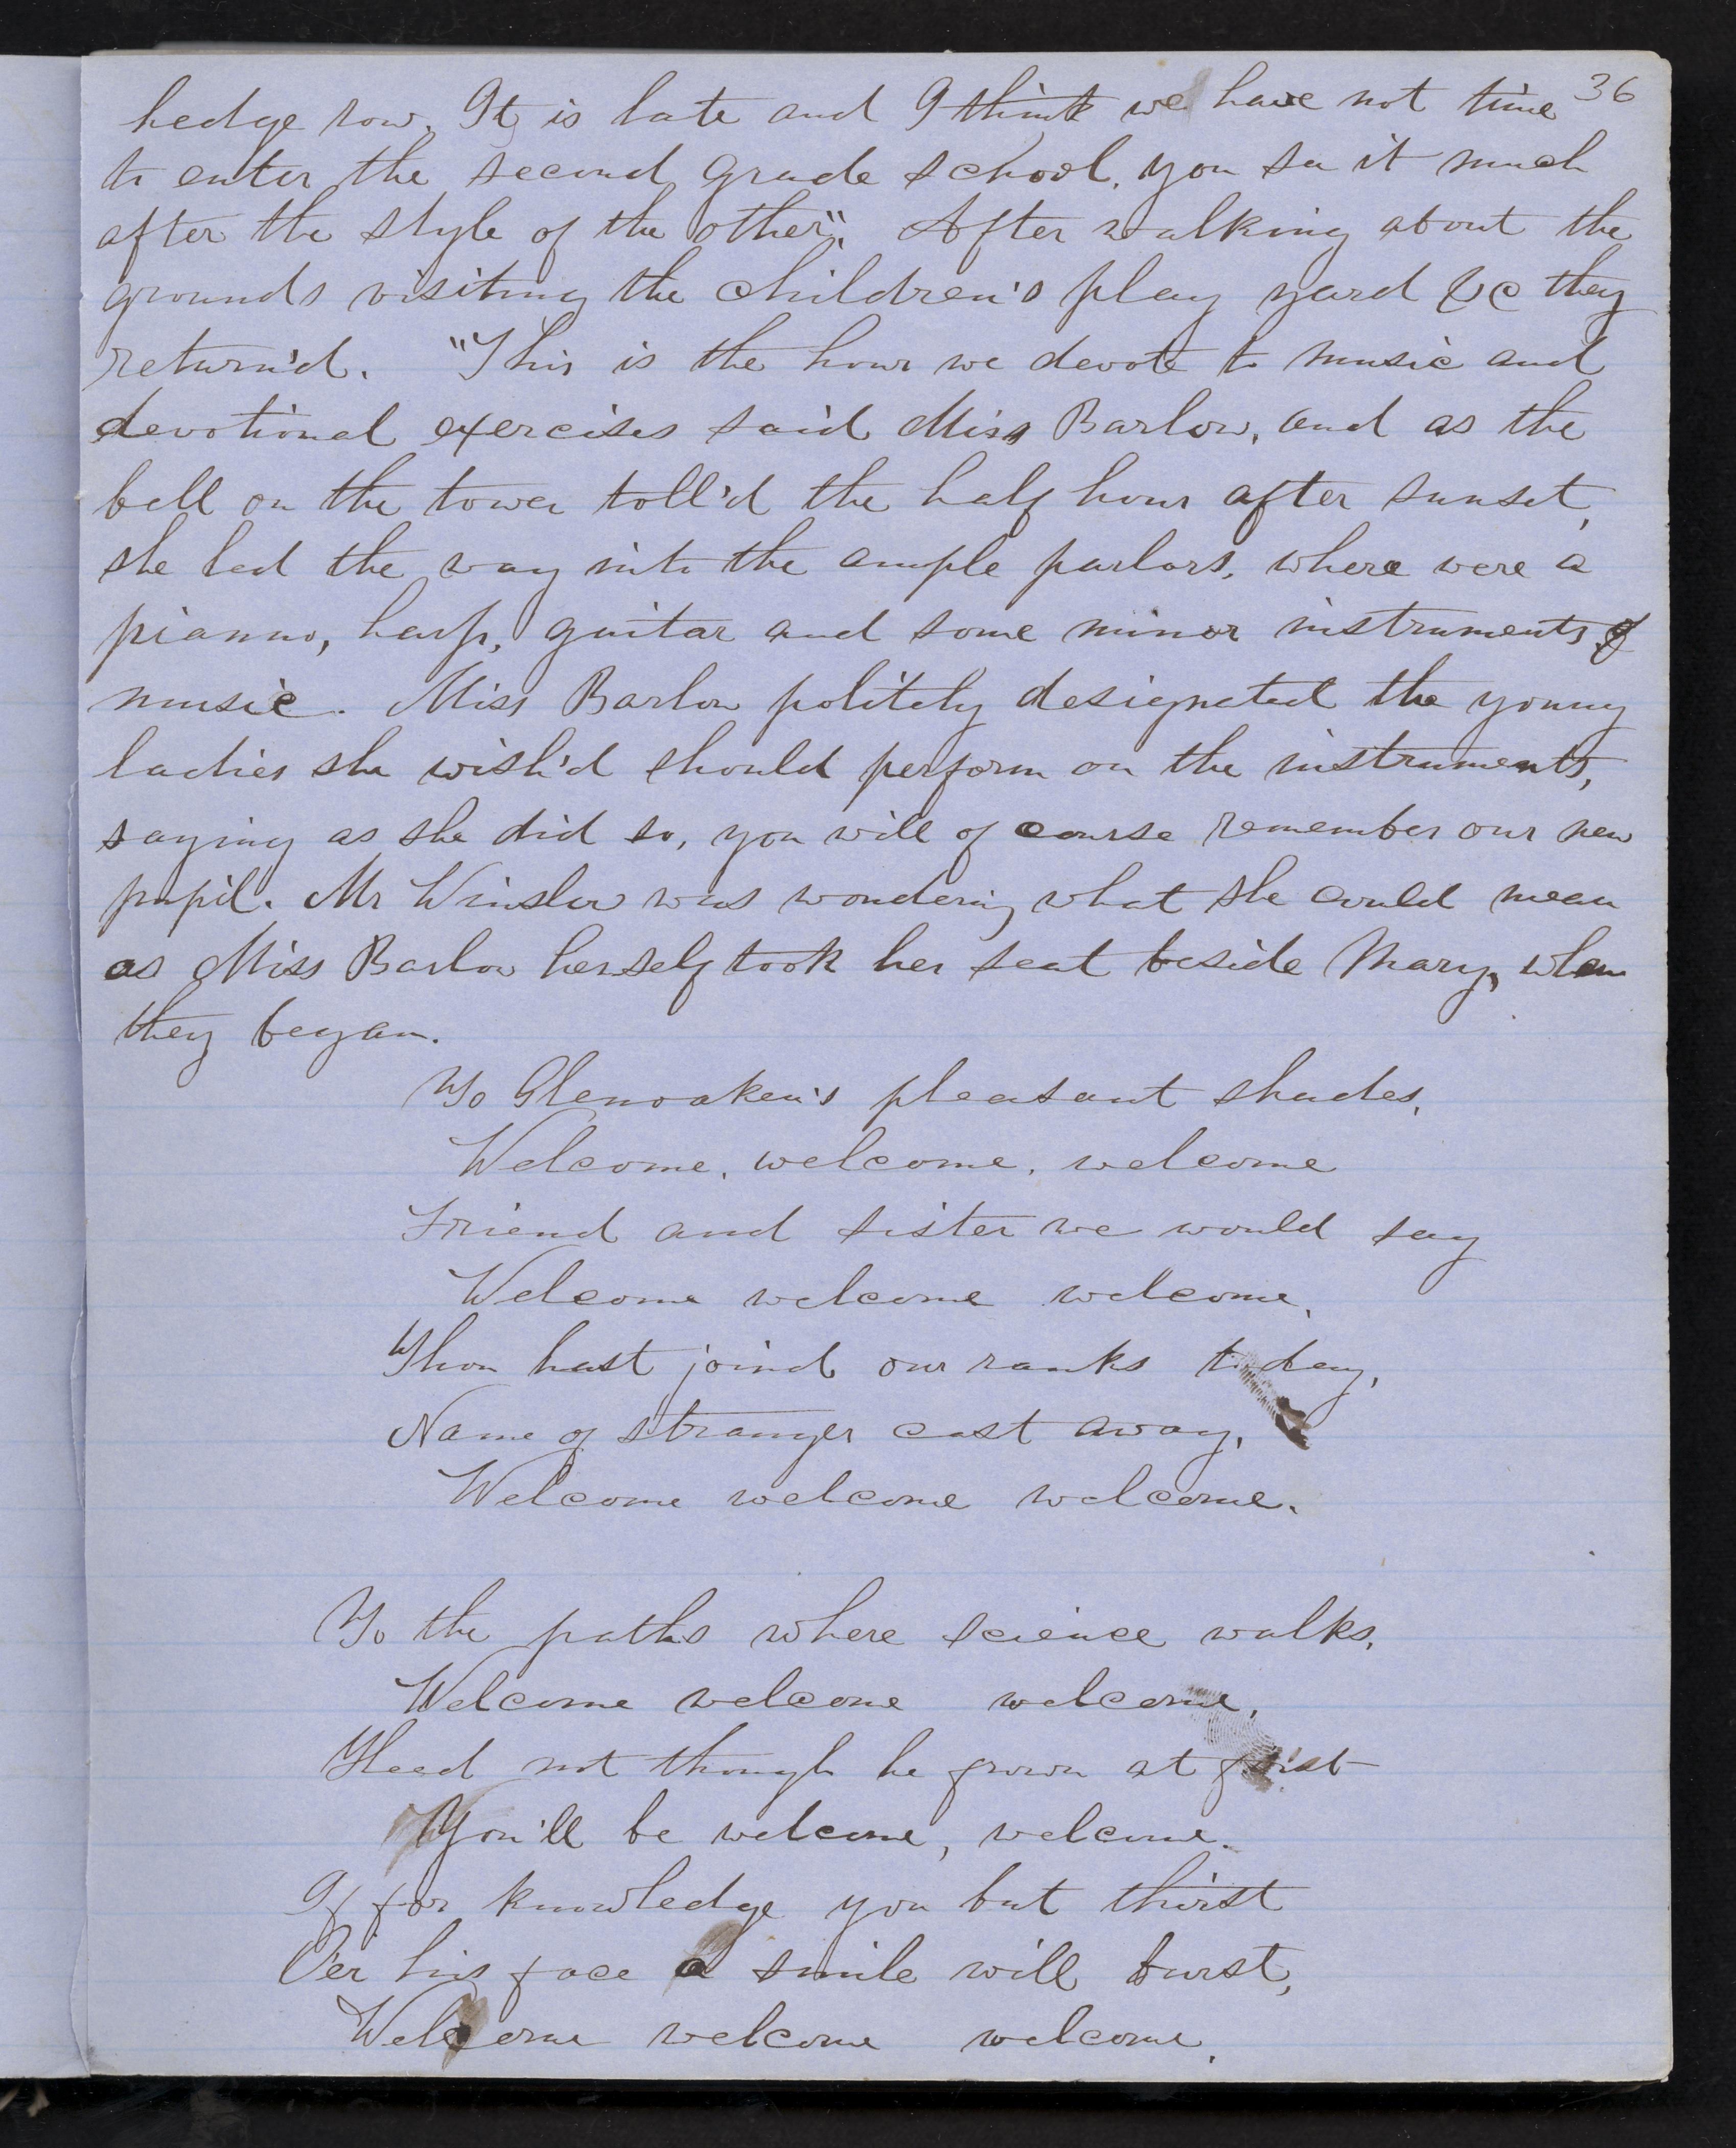 36
hedge row. It is late and I think we have not time
to enter the second grade school. you see it much
after the style of the other". After walking about the
grounds visiting the children's play yard &c they
return'd. "This is the hour we devote to music and
devotional exercises said Miss Barlow, and as the
bell on the tower toll'd the half hour after sunset,
she led the way into the ample parlors, where were a
pianno, harp, guitar and some minor instruments of
music. Miss Barlow politely designated the young
ladies she wish'd should perform on the instruments,
saying as she did so, you will of course remember our new
pupil. Mr Winslow was wondering what she could mean
as Miss Barlow herself took her seat beside Mary, when
they began.
To Glenoaken's pleasant shades,
Welcome, welcome, welcome
Friend and sister we would say
Welcome welcome welcome,
Thou hast joind our ranks today,
Name of stranger cast away,
Welcome welcome welcome.
To the paths where science walks,
Welcome welcome welcome,
Heed not though he frown at first
You'll be welcome, welcome.
If for knowledge you but thirst
O'er his face a smile will burst,
Welcome welcome welcome.